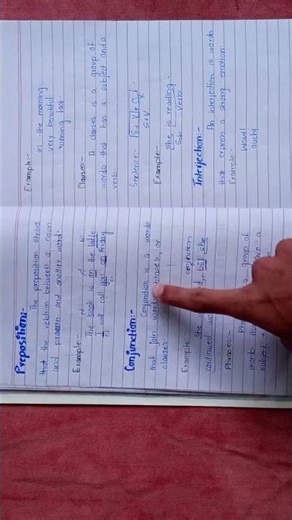 Preposition:-
The preposition shows
that the reltion between a noun
and pronoun and another word.
Example:-
The book is on the table
call you on Friday
Conjunction:-
Conjunction is a words
that join words, or
clauses.
conjunction
She but she
continued
Phrases
a group of
words
subject
Example:-
in the morning
very beautiful
running fast.
Clauses:-
A clauses is a group of
words that has a subject and a
verb.
Sentence:- S+V+O
S+V
Example:-
She is reading.
Sub verb
Interjection:-
An interjection is words
that express a strong emotion
Example:-
wow!
ouch!